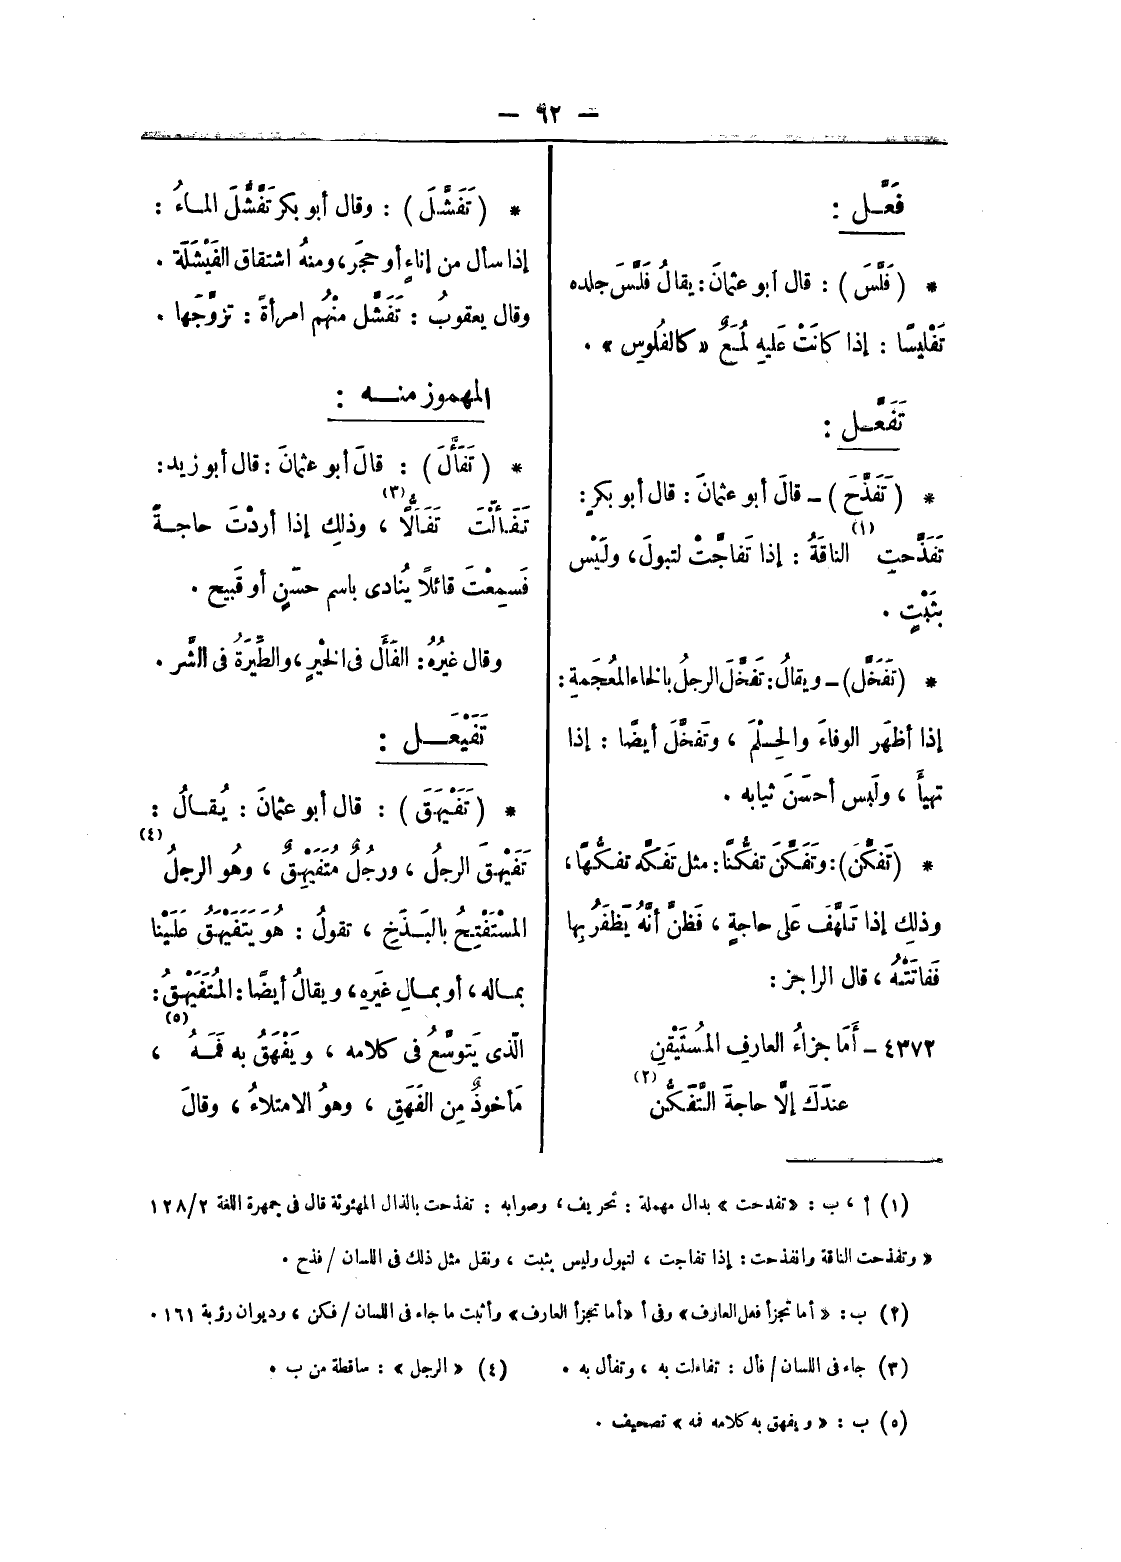 — ٩٢ —
فَعَّـل :
* ( فَلَّسَ ) : قال أبو عثمانَ : يقالُ فَلَّسَ جلده
تَفْلِيسًا : إذا كانَتْ عَليهِ لُمَعٌ « كالفُلوسِ » .
تَفَعَّـل :
* ( تَفَذَّحَ ) – قالَ أبو عثمانَ : قال أبو بكرٍ :
تَفَذَّحتِ (١) الناقَةُ : إذا تَفاجَّتْ لتبولَ ، ولَيْس
بثَبْتٍ .
* ( تَفَخَّل ) – ويقالُ : تَفَخَّلَ الرجلُ بالخاء المُعْجَمةِ :
إذا أظهَر الوفاءَ والحِلْمَ ، وتَفخَّلَ أيضًا : إذا
تهيأَ ، ولَبِس أحسَنَ ثيابه .
* ( تَفكَّنَ ) : وتَفَكَّنَ تفكُّنًا : مثل تَفَكَّه تفكُّهًا ،
وذلِك إذا تَلهَّفَ عَلى حاجةٍ ، فَظنَّ أنَّهُ يَظفَرُ بِها
فَفاتَتْهُ ، قال الراجز :
٤٣٧٢ – أَمَا جزاءُ العارِفِ المُسْتَيْقِنِ
عندَكَ إلَّا حاجةَ التَّفَكُّنِ (٢)
* ( تَفَشَّلَ ) : وقال أبو بكر تَفَشَّلَ المـاءُ :
إذا سأل من إناءٍ أو حجَر ، ومنهُ اشتقاق الفَيْشَلَة .
وقال يعقوبُ : تَفَشَّل منْهُم امرأةً : تزوَّجها .
المهموز منـــه :
* ( تَفَأَّلَ ) : قالَ أبو عثمانَ : قال أبو زيد :
تَفَأَّلْتَ تَفَأُّلًا (٣) ، وذلِك إذا أردْتَ حاجـةً
فَسمِعْتَ قائلًا يُنادى باسم حسَنٍ أو قَبيح .
وقال غيرُهُ : الفَأَل فى الخَيْرِ ، والطِّيَرَةُ فى الشَّر .
تَفَيْعَـــل :
* ( تَفَيْهَقَ ) : قال أبو عثمانَ : يُقـالُ :
تَفَيْهقَ الرجلُ ، ورجلٌ مُتَفَيْهِقٌ ، وهو الرجلُ (٤)
المسْتَفْتِحُ بالبَـذَخِ ، تقولُ : هُوَ يَتَفَيْهَقُ عَلَيْنا
بمـاله ، أو بمـالِ غَيرِهِ ، ويقالُ أيضًا : المُتَفَيْهِقُ :
الَّذى يَتوسَّعُ فى كلامه ، ويَفْهَقُ به فَمَـهُ (٥) ،
مَأخوذٌ مِن الفَهَقِ ، وهوُ الامتلاءُ ، وقالَ
(١) أ ، ب : « تفدحت » بدال مهملة : تحريف ، وصوابه : تفذحت بالذال المهثوثة قال فى جمهرة اللغة ١٢٨/٢
« وتفذحت الناقة وانفذحت : إذا تفاجت ، لتبول وليس بثبت ، ونقل مثل ذلك فى اللسان / فذح .
(٢) ب : « أما تجزأ فعل العارف » وفى أ « أما تجزأ العارف » وأثبت ما جاء فى اللسان / فكن ، وديوان رؤبة ١٦١ .
(٣) جاء فى اللسان / فأل : تفاءلت به ، وتفأل به . (٤) « الرجل » : ساقطة من ب .
(٥) ب : « ويفهق به كلامه فه » تصحيف .